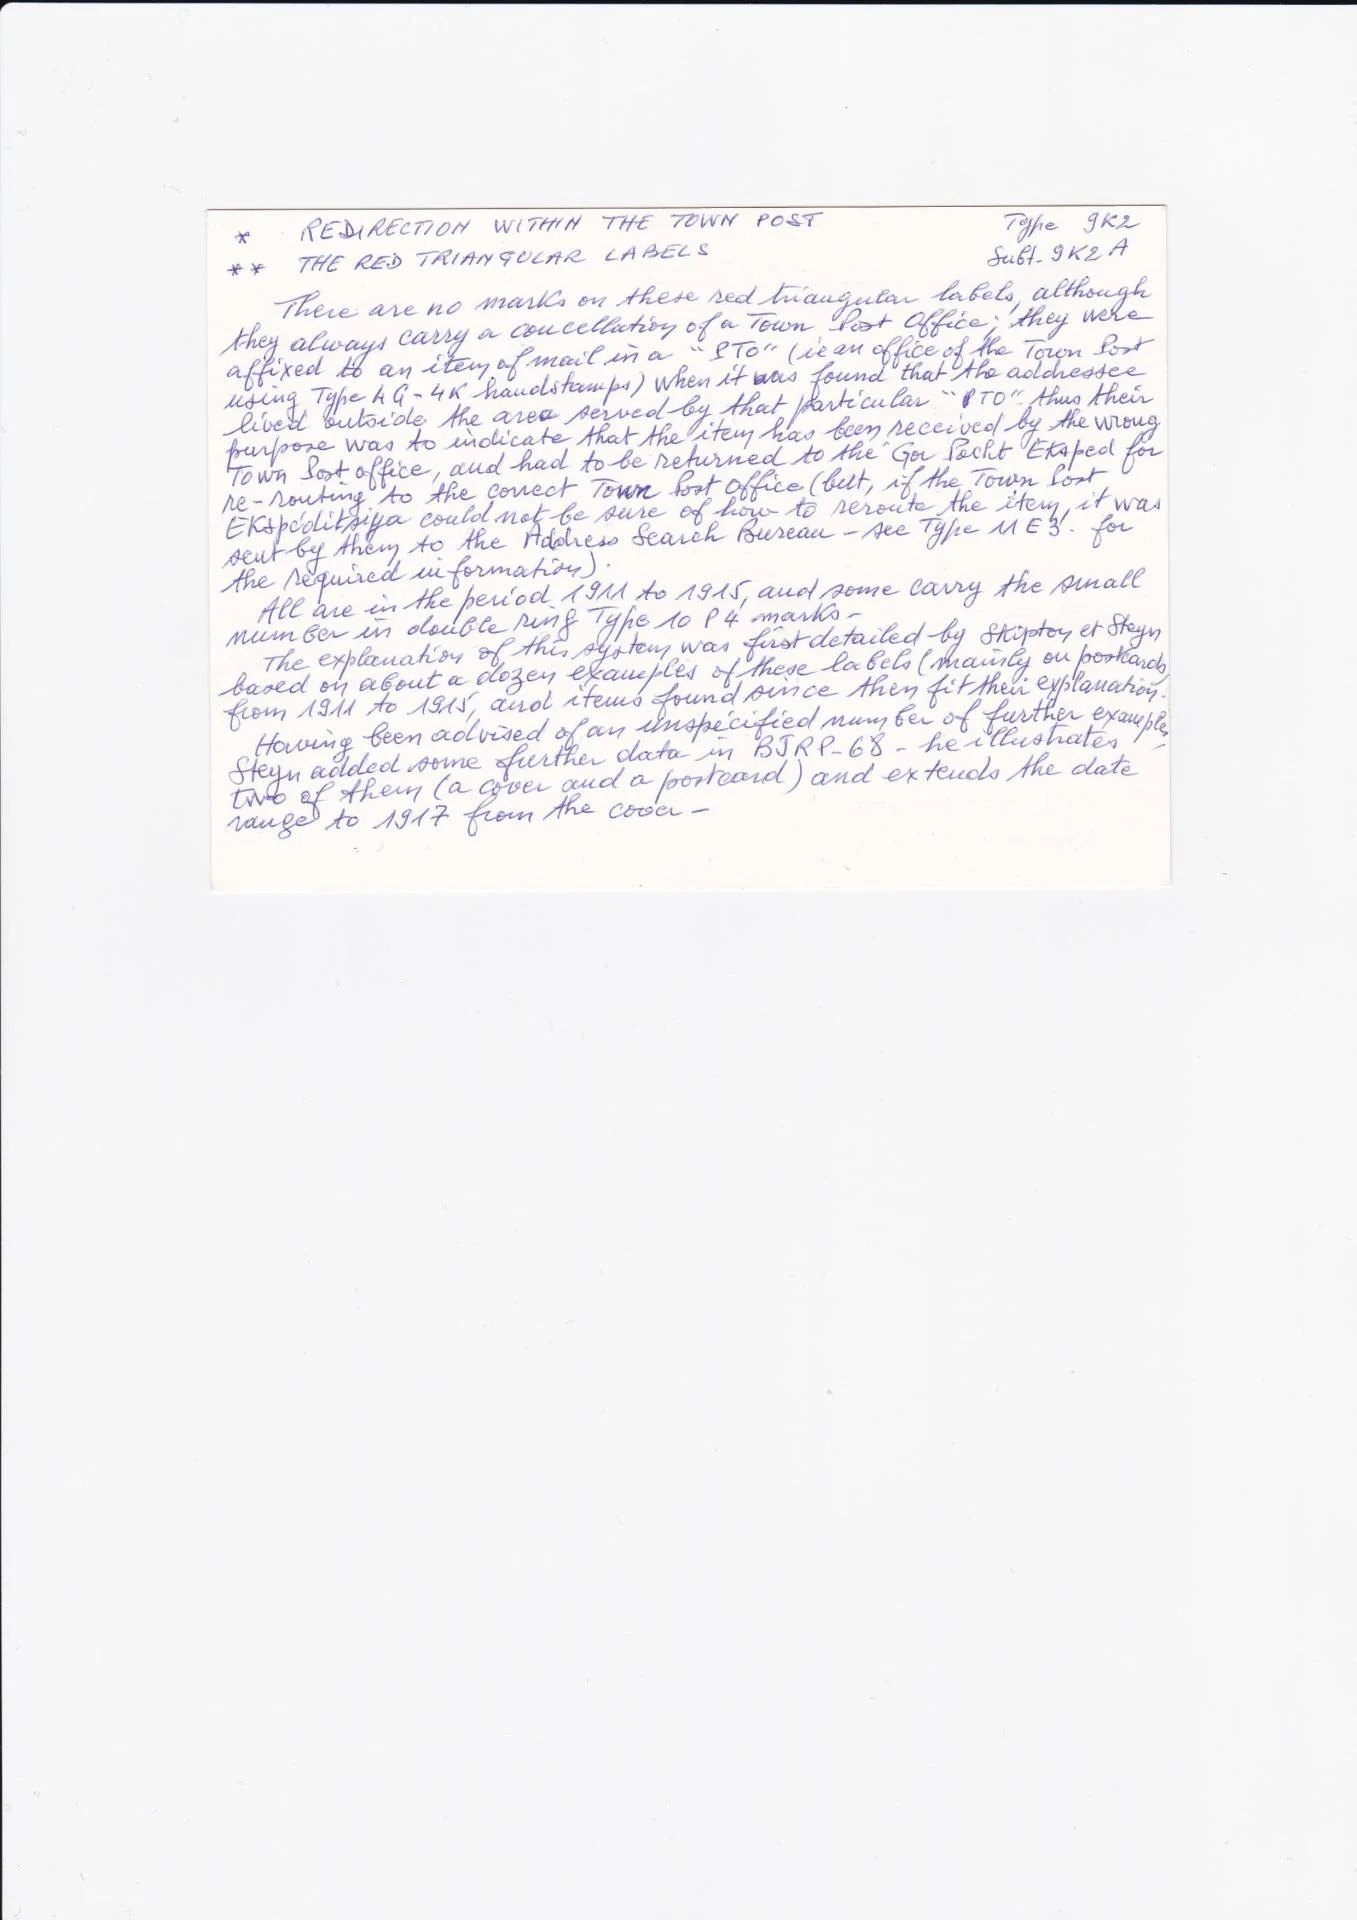 * REDIRECTION WITHIN THE TOWN POST Type 9K2
** THE RED TRIANGULAR LABELS Subt. 9K2A
There are no marks on these red triangular labels, although
they always carry a concellation of a Town Post Office; they were
affixed to an item of mail in a "PTO" (ie an office of the Town Post
using Type 4G-4K handstamps) when it was found that the addressee
lived outside the area served by that particular "PTO". thus their
purpose was to indicate that the item has been received by the wrong
Town Post office, and had to be returned to the Gor Pocht Eksped for
re-routing to the correct Town Post Office (but, if the Town Post
Ekspéditsiya could not be sure of how to reroute the item, it was
sent by them to the Address Search Bureau - see Type 11E3. for
the required information).
All are in the period 1911 to 1915, and some carry the small
number in double ring Type 10P4 marks-
The explanation of this system was first detailed by Skipton et Steyn
based on about a dozen examples of these labels (mainly on postcards,
from 1911 to 1915, and items found since then fit their explanation.
Having been advised of an unspécified number of further examples,
Steyn added some further data in BJRP-68 - he illustrates
two of them (a cover and a postcard) and extends the date
range to 1917 from the cover-